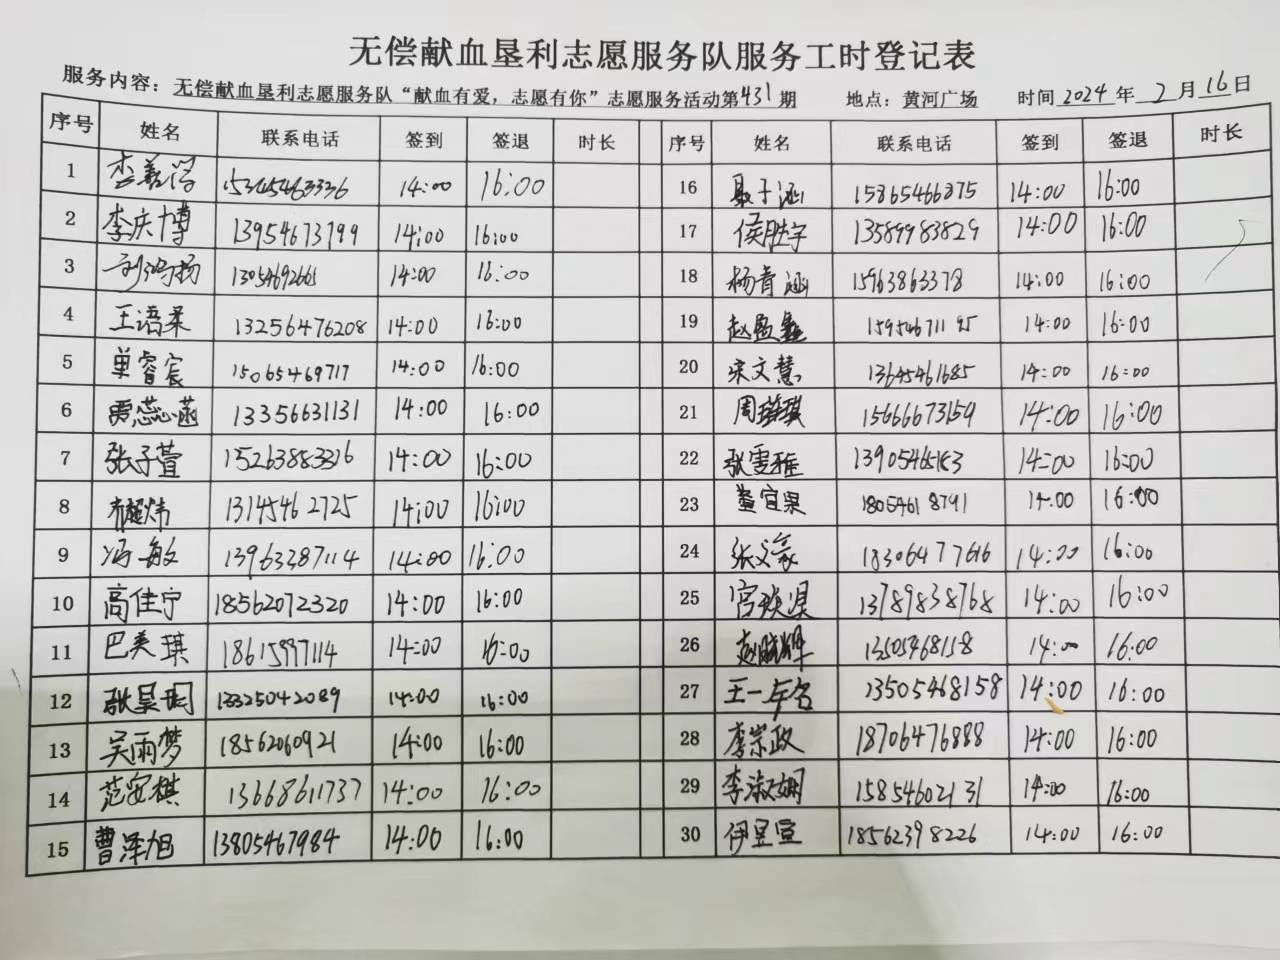 无偿献血垦利志愿服务队服务工时登记表
服务内容：无偿献血垦利志愿服务队“献血有爱，志愿有你”志愿服务活动第431期 地点：黄河广场 时间 2024 年 2 月 16 日
序号 姓名 联系电话 签到 签退 时长 序号 姓名 联系电话 签到 签退 时长
1 14:00 16:00 16 15865466875 14:00 16:00
2 李庆博 13954673799 14:00 16:00 17 侯胜宇 13589983829 14:00 16:00
3 刘鸿扬 14:00 16:00 18 杨青涵 15963863378 14:00 16:00
4 王语柔 13256476208 14:00 16:00 19 赵盈鑫 15954671195 14:00 16:00
5 单睿宸 15065469717 14:00 16:00 20 宋文慧 13645461685 14:00 16:00
6 贾蕊菡 13356631131 14:00 16:00 21 15666673159 14:00 16:00
7 张子萱 15263883316 14:00 16:00 22 张雯雅 14:00 16:00
8 13145462725 14:00 16:00 23 18054618791 14:00 16:00
9 冯敏 13963387114 14:00 16:00 24 张文豪 18306477616 14:00 16:00
10 高佳宁 18562072320 14:00 16:00 25 13789838768 14:00 16:00
11 巴美琪 18615997114 14:00 16:00 26 14:00 16:00
12 张昊玥 13325042089 14:00 16:00 27 王一名 13505468158 14:00 16:00
13 吴雨梦 18562060921 14:00 16:00 28 李崇政 18706476888 14:00 16:00
14 范安棋 13668611737 14:00 16:00 29 李淑娴 15854602131 14:00 16:00
15 曹泽旭 13805467984 14:00 16:00 30 伊昱萱 18562398226 14:00 16:00